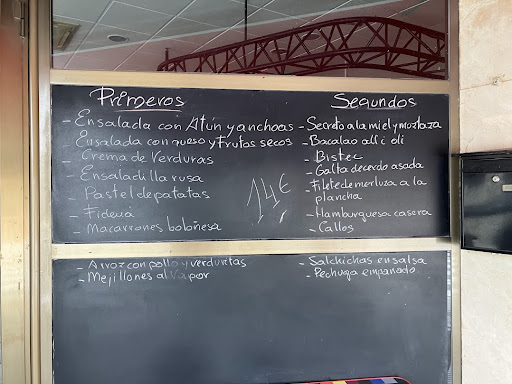 Primeros
- Ensalada con Atún y anchoas
Ensalada con queso y frutos secos
- Crema de verduras
- Ensaladilla rusa
- Pastel de patatas
- Fideuá
- Macarrones boloñesa
- Arroz con pollo y verduritas
- Mejillones al vapor
14€
Segundos
- Secreto a la miel y mostaza
- Bacalao all i oli
- Bistec
- Galta de cerdo asada
- Filete de merluza a la
plancha
- Hamburguesa casera
- Callos
- Salchichas en salsa
- Pechuga empanado